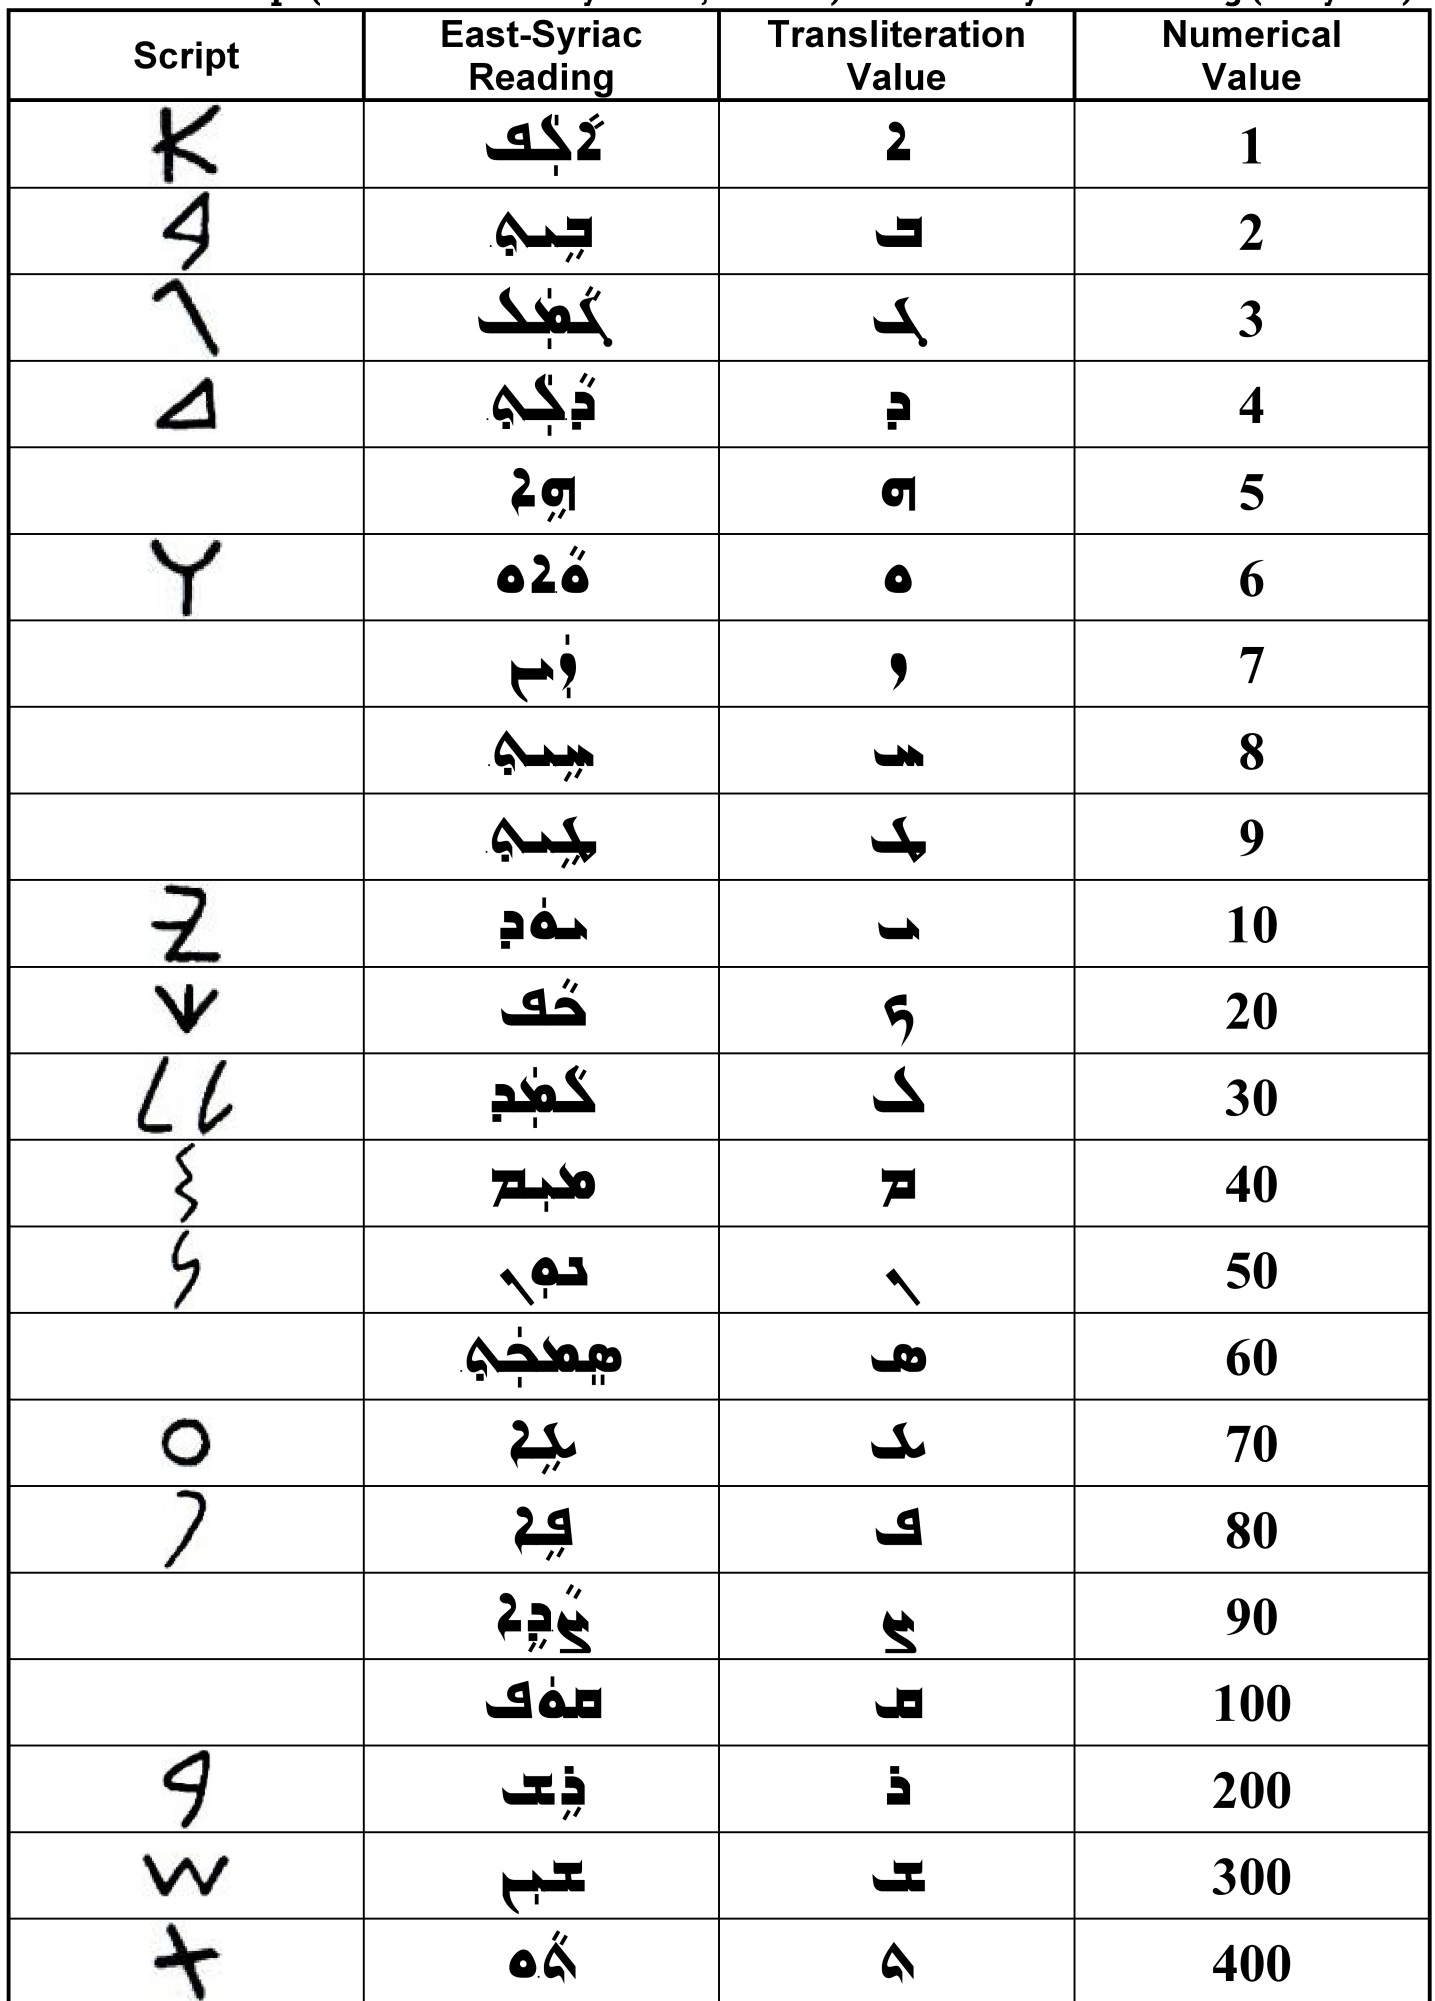 Script East-Syriac Reading Transliteration Value Numerical Value
𐤀 ܐܵܠܲܦ ܐ 1
𐤁 ܒܹܝܬ݂ ܒ 2
𐤂 ܓܵܡܲܠ ܓ 3
𐤃 ܕܵܠܲܬ݂ ܕ 4
ܗܹܐ ܗ 5
𐤅 ܘܵܐܘ ܘ 6
ܙܲܝܢ ܙ 7
ܚܹܝܬ݂ ܚ 8
ܛܹܝܬ݂ ܛ 9
𐤉 ܝܘܿܕ ܝ 10
𐤊 ܟܵܦ ܟ 20
𐤋 𐤋 ܠܵܡܲܕ ܠ 30
𐤌 ܡܝܼܡ ܡ 40
𐤍 ܢܘܼܢ ܢ 50
ܣܸܡܟܲܬ݂ ܣ 60
𐤏 ܥܹܐ ܥ 70
𐤐 ܦܹܐ ܦ 80
ܨܵܕܹܐ ܨ 90
ܩܘܿܦ ܩ 100
𐤓 ܪܹܫ ܪ 200
𐤔 ܫܝܼܢ ܫ 300
𐤕 ܬܵܘ ܬ 400